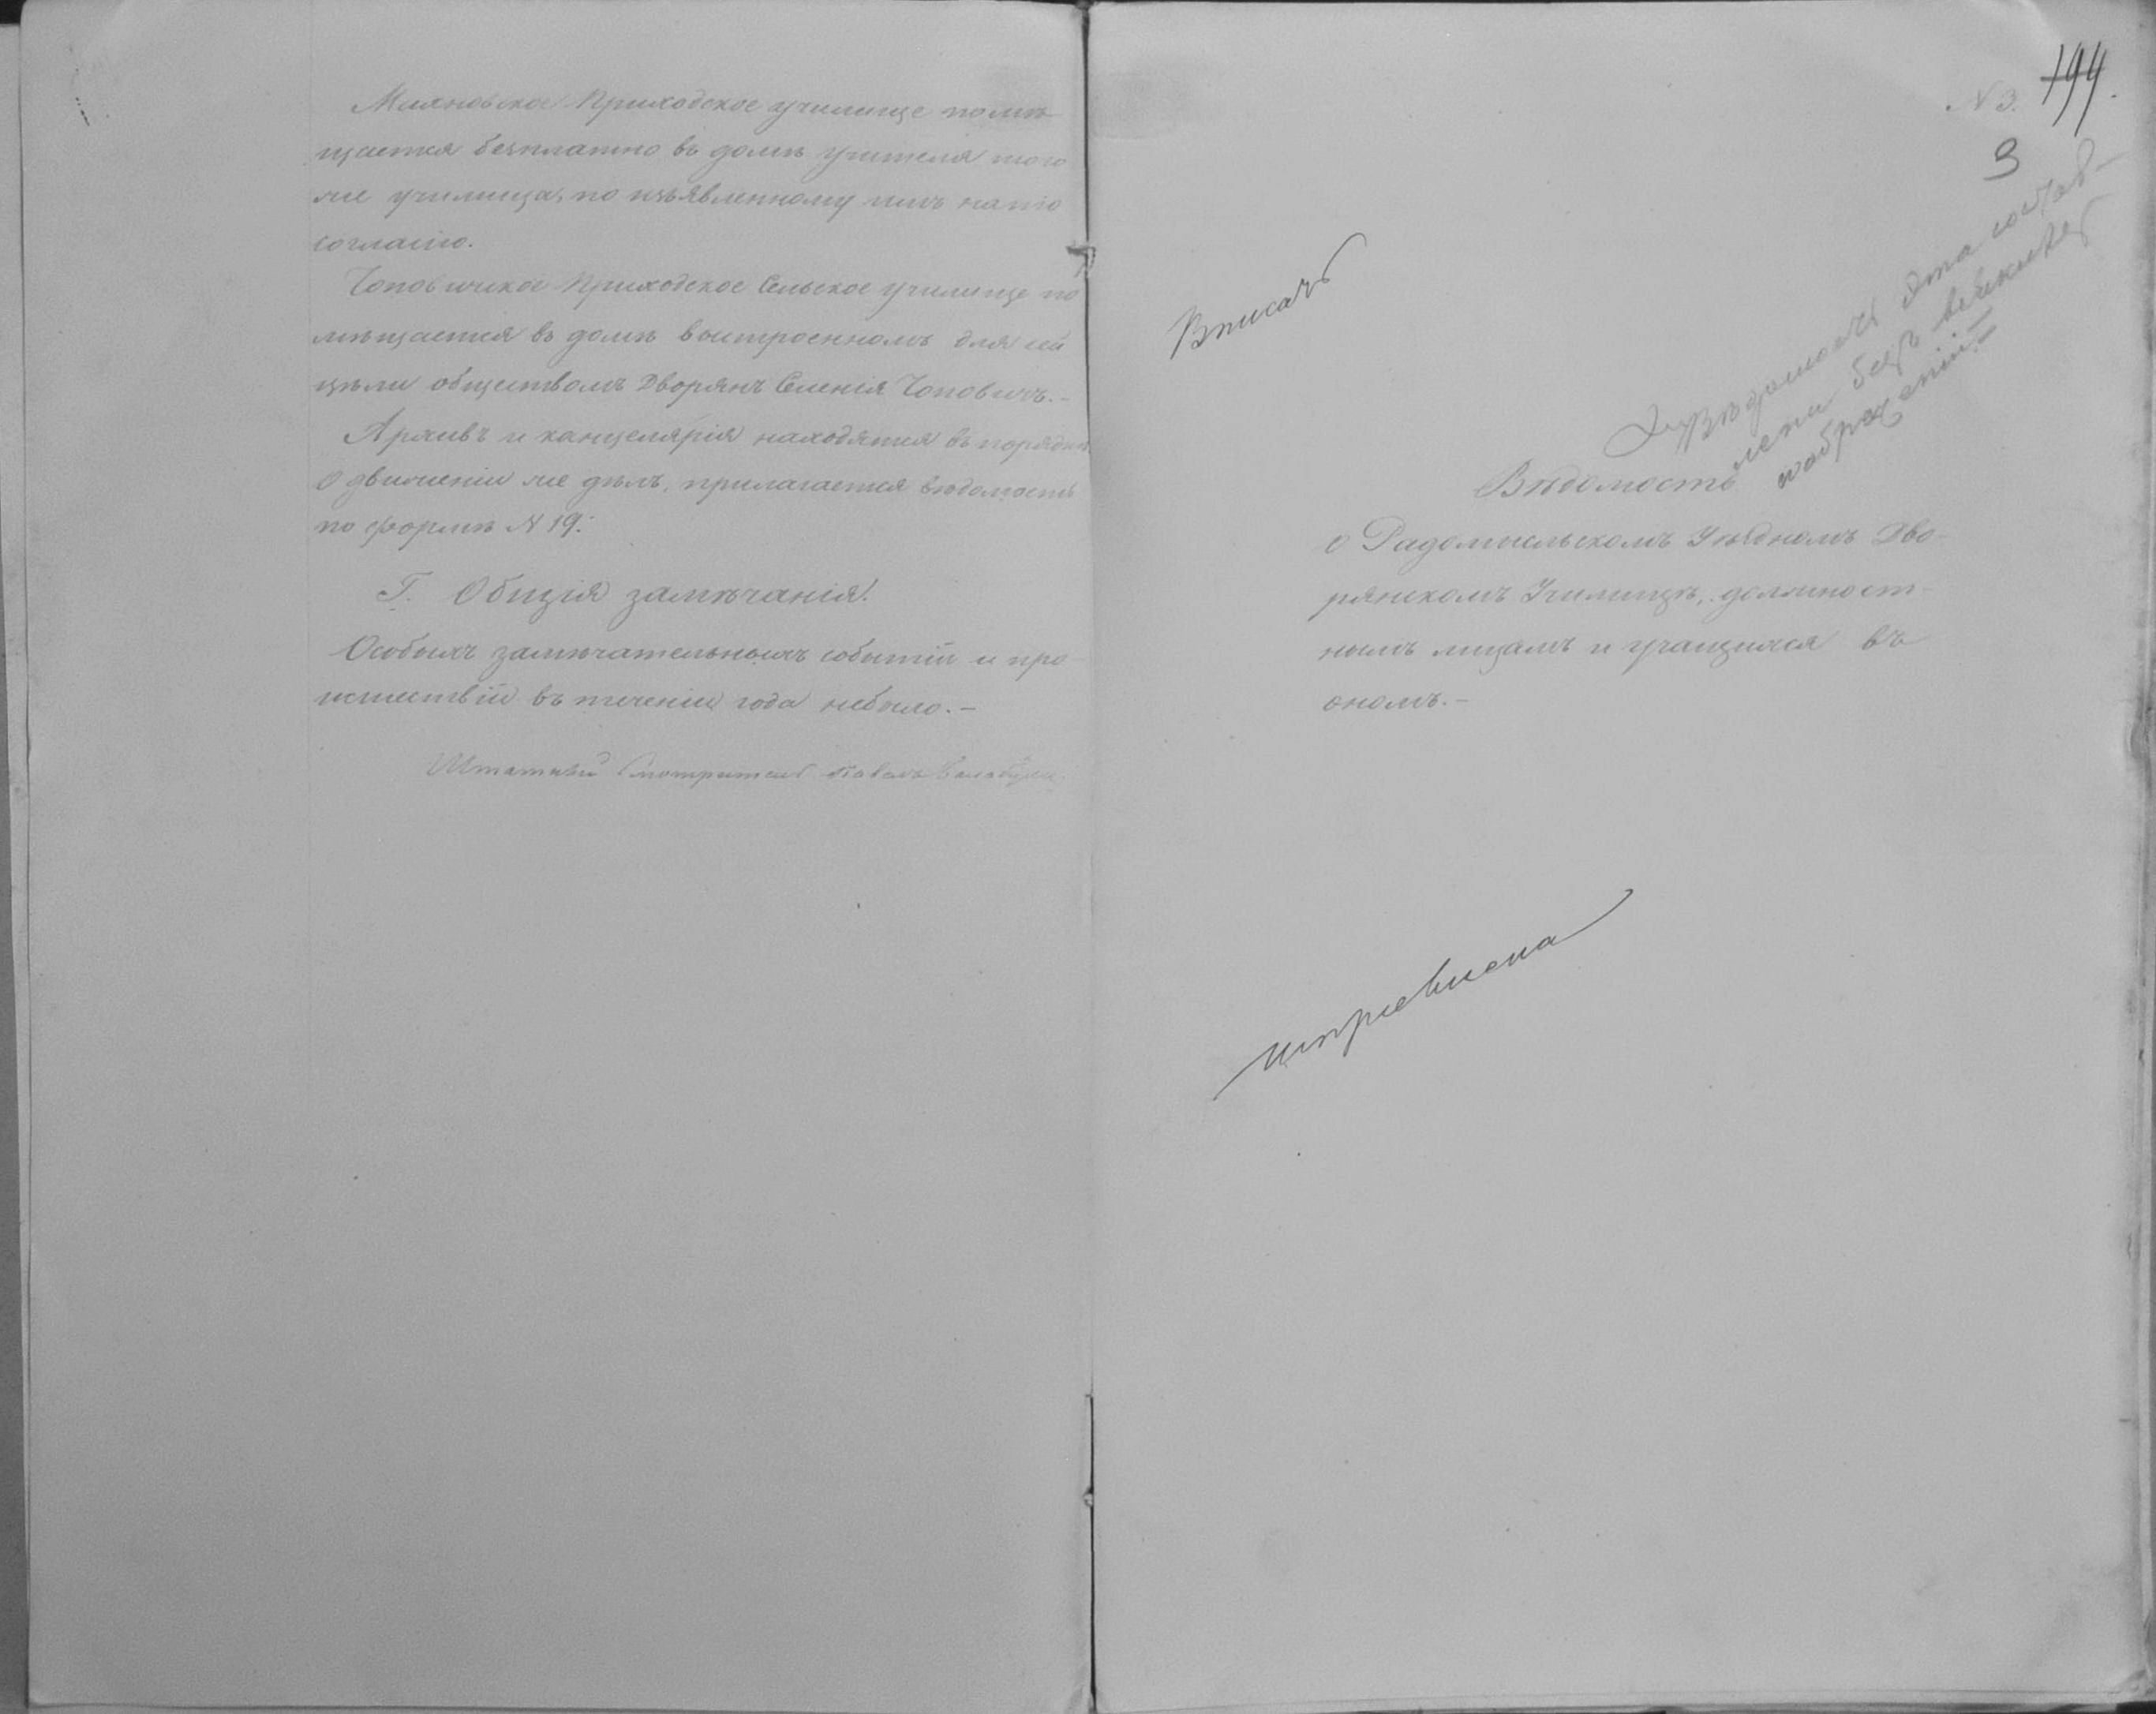 Приходское училище помѣ
щается безплатно въ домѣ учителя того
же училища, по изъявленному имъ на то
согласію.
Чоповичкое Приходское Сельское училище по
мѣщается въ домѣ выстроенномъ для сей
цѣли обществомъ Дворянъ Селенія Чоповичъ.-
Архивъ и канцелярія находятся въ порядкѣ.
О движеніи же дѣлъ, прилагается вѣдомость
по формѣ N 19.
Г. Общія замѣчанія.
Особыхъ замѣчательныхъ событій и про
исшествій въ теченіи года небыло.-
Штатный Смотритель Павелъ
194.
N 3.
3
Вписать
Вѣдомость эта состав-
лена безъ всякихъ
соображеній.
Вѣдомость
о Радомысльскомъ Уѣздномъ Дво-
рянскомъ Училищѣ, должност-
нымъ лицамъ и учащихся въ
ономъ.-
исправлена